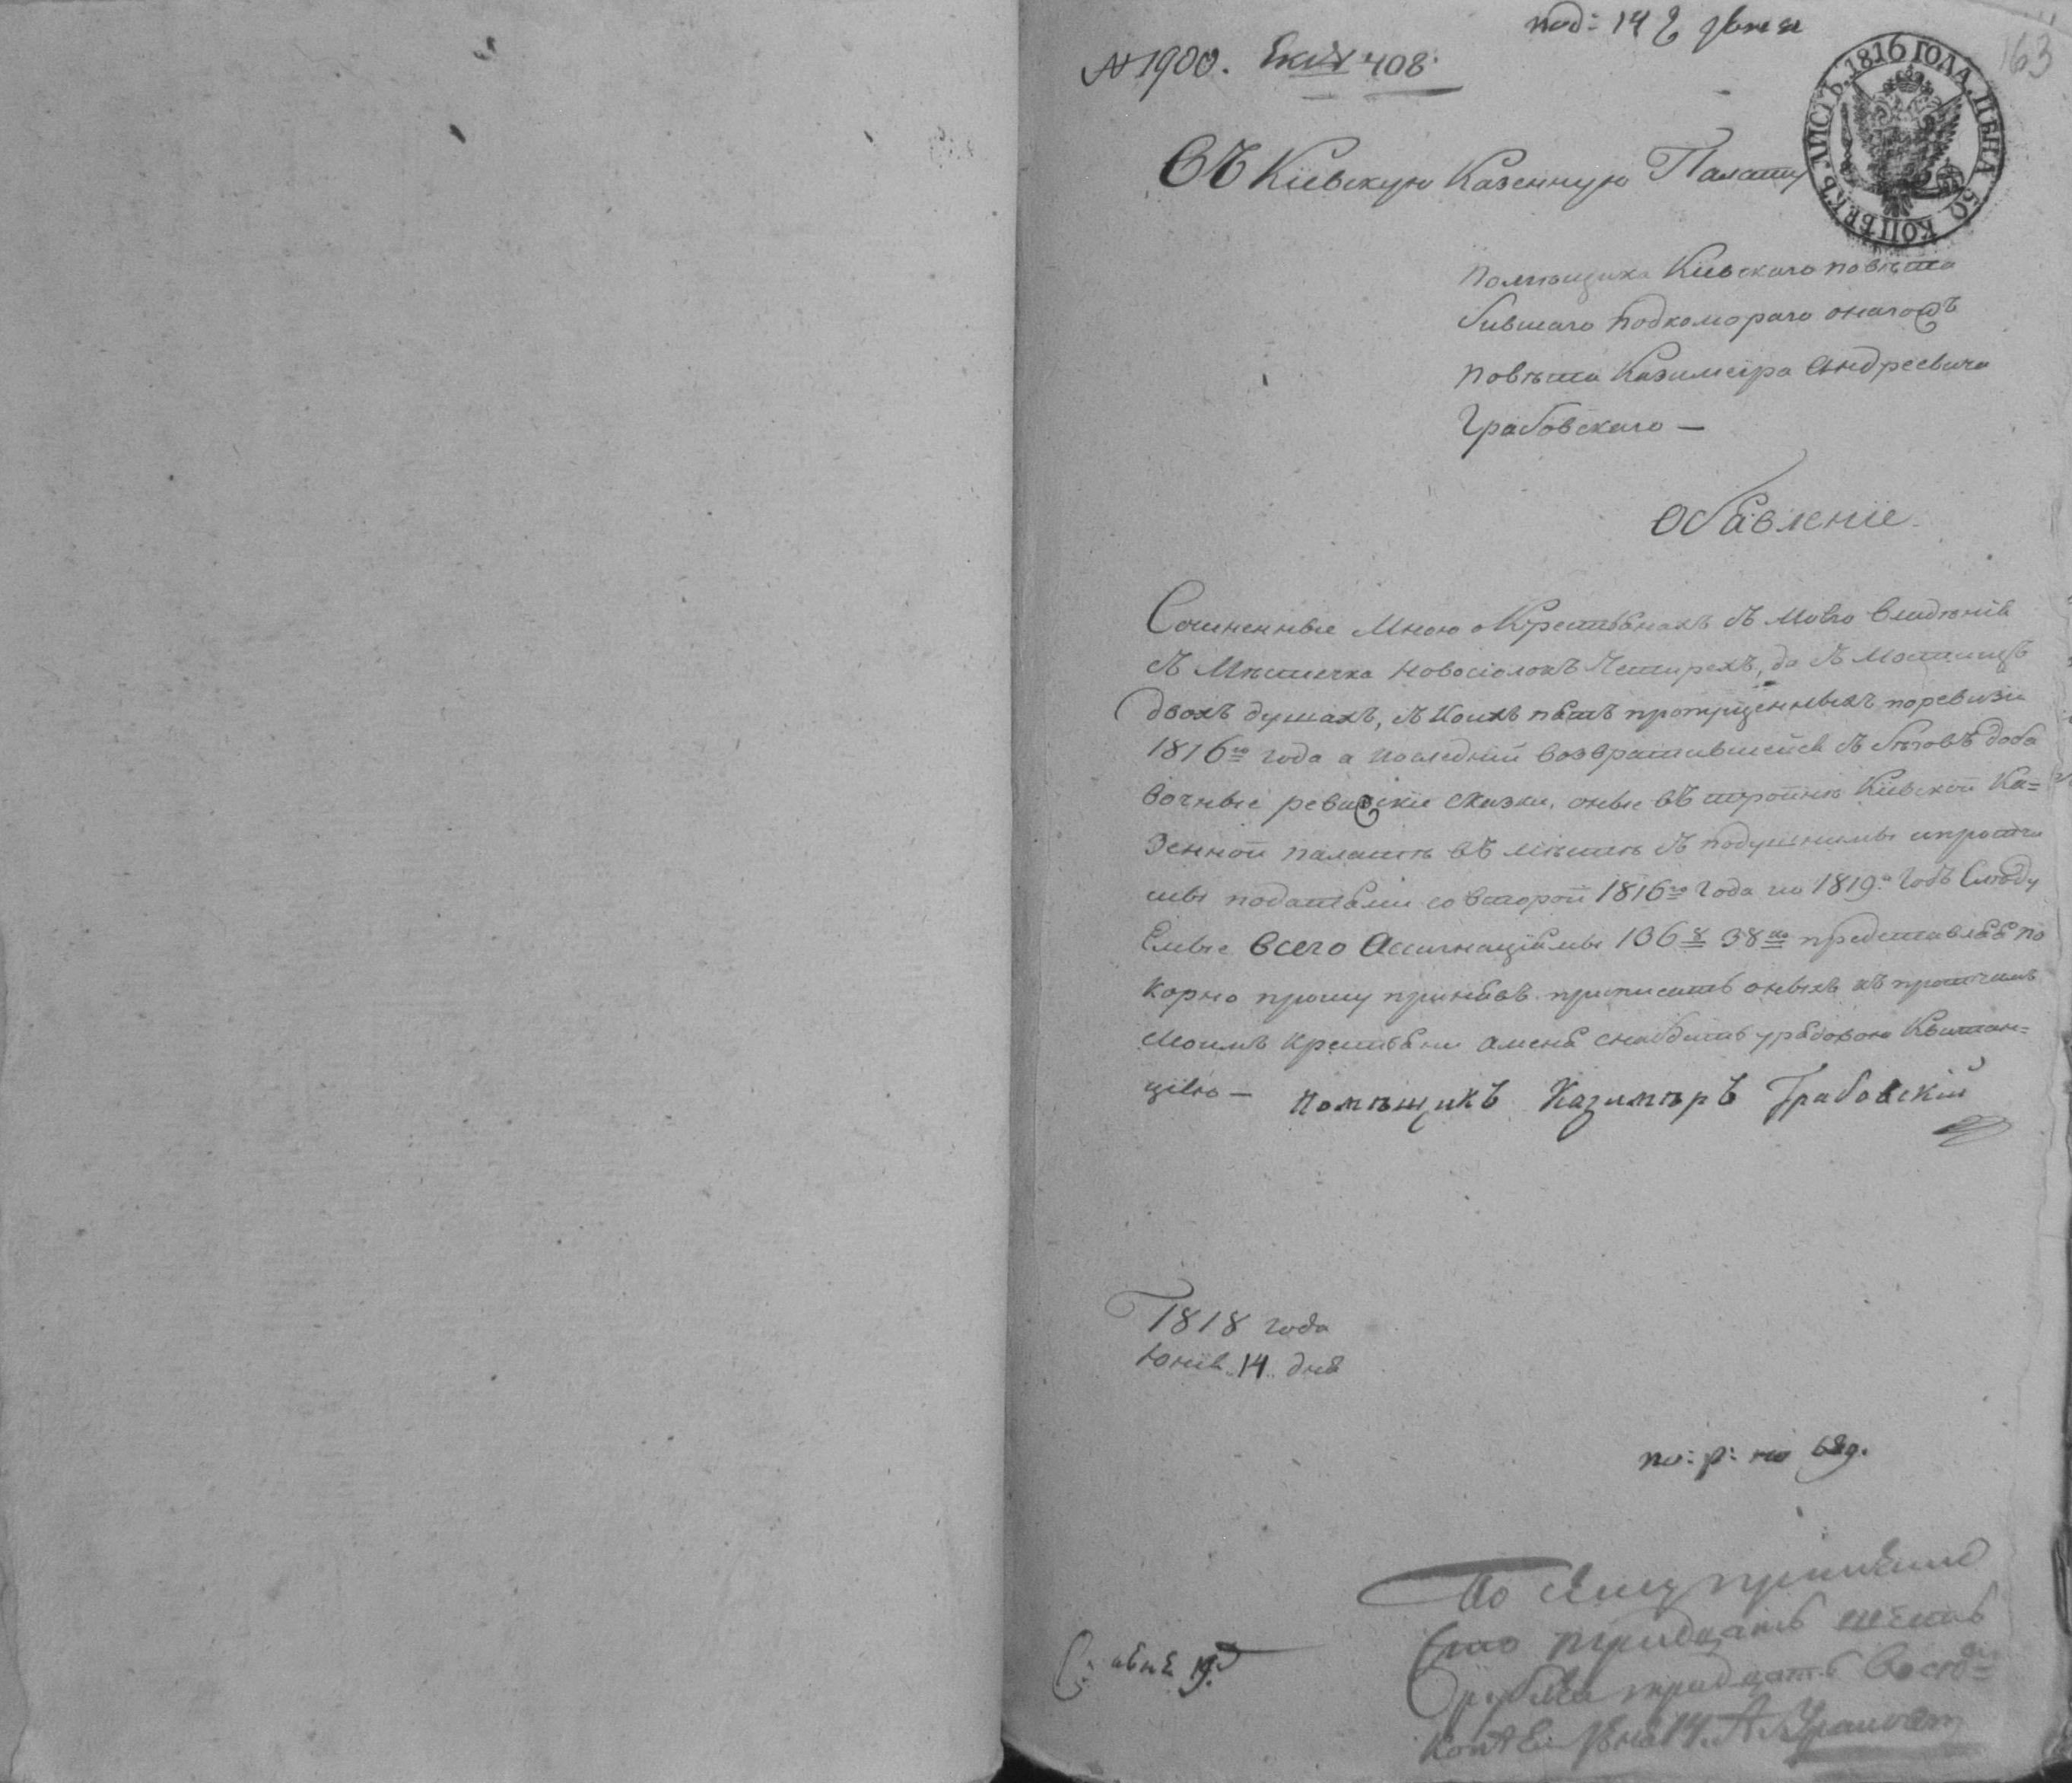 под: 14 Іюня
163
№ 1900. 408.
ЛИСТЪ. 1816 ГОДА. ЦѢНА 50 КОПѢЕКЪ
Въ Кіевскую Казенную Палату
Помѣщика Кіевскаго повѣта
бившаго Подкомораго онагожъ
повѣта Казимира Андреевича
Грабовскаго —
Обявленіе
Сочиненные мною о Крестянахъ въ моего владѣнія
въ Мѣстечка Новосіолокъ Четирехъ, да въ
двохъ душахъ, въ коихъ пять пропущенныхъ по ревизіи
1816го года а последній возвратившейся въ бѣговъ доба
вочные ревизскіе сказки, оные Кіевской Ка=
зенной палатѣ въ мѣстѣ въ подушними и протчи
мы податьями со второй 1816го года по 1819й Годъ Слѣду
емые всего Ассигнаціямы 136 р 38 ко представляя по
корно прошу принявъ приписать оныхъ къ протчимъ
моимъ крестьянъ а меня снабдить урядовою Квитан=
ціею — Помѣщикъ Казимѣръ Грабовскій
1818 года
Юнія 14 дня
по: р: на 689.
По сему
Сто тридцать шесть
рубли тридцать восем
коп 14.